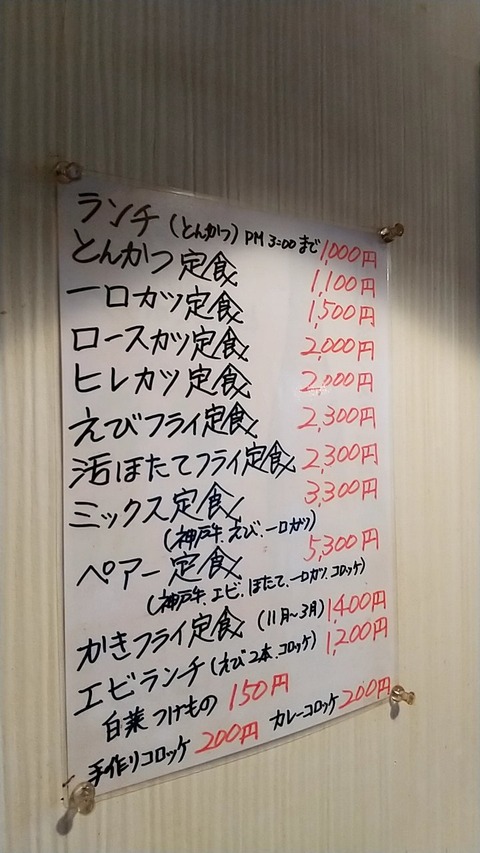 ランチ(とんかつ)PM 3:00まで 1,000円
とんかつ定食 1,100円
一口カツ定食 1,500円
ロースカツ定食 2,000円
ヒレカツ定食 2,000円
えびフライ定食 2,300円
活ほたてフライ定食 2,300円
ミックス定食 3,300円
(神戸牛、えび、一口カツ)
ペアー定食 5,300円
(神戸牛、エビ、ほたて、一口カツ、コロッケ)
かきフライ定食(11月〜3月)1,400円
エビランチ(えび2本、コロッケ)1,200円
白菜つけもの 150円
手作りコロッケ 200円 カレーコロッケ 200円